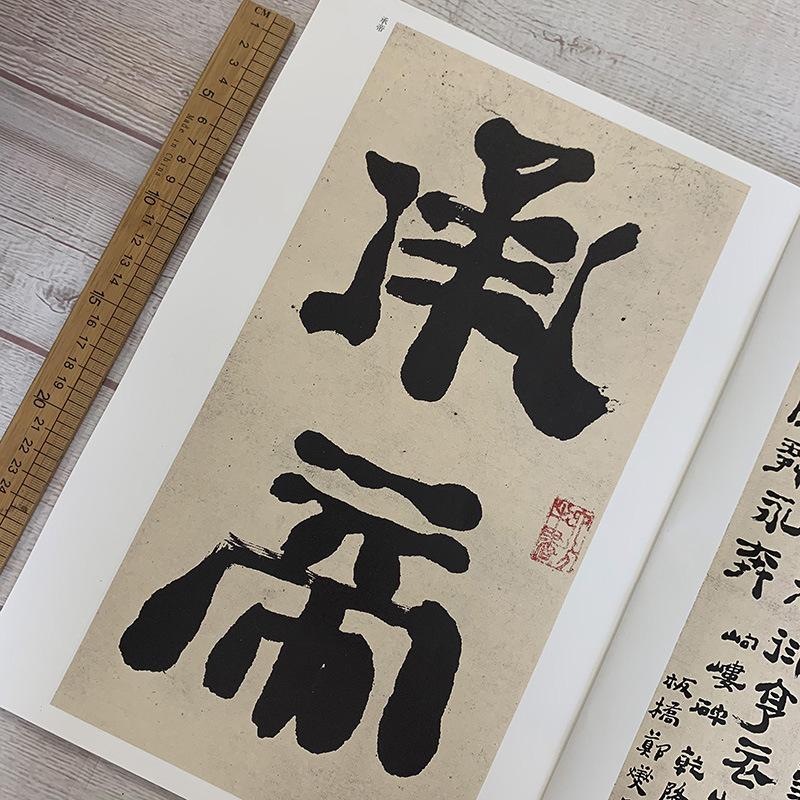 承帝
CM 1 2 3 4 5 6 7 8 9 10 11 12 13 14 15 16 17 18 19 20 21 22 23 24
Made in China
承
帝
衍亨衣
舞永奔
岣嶁碑
乾隆
板橋鄭燮